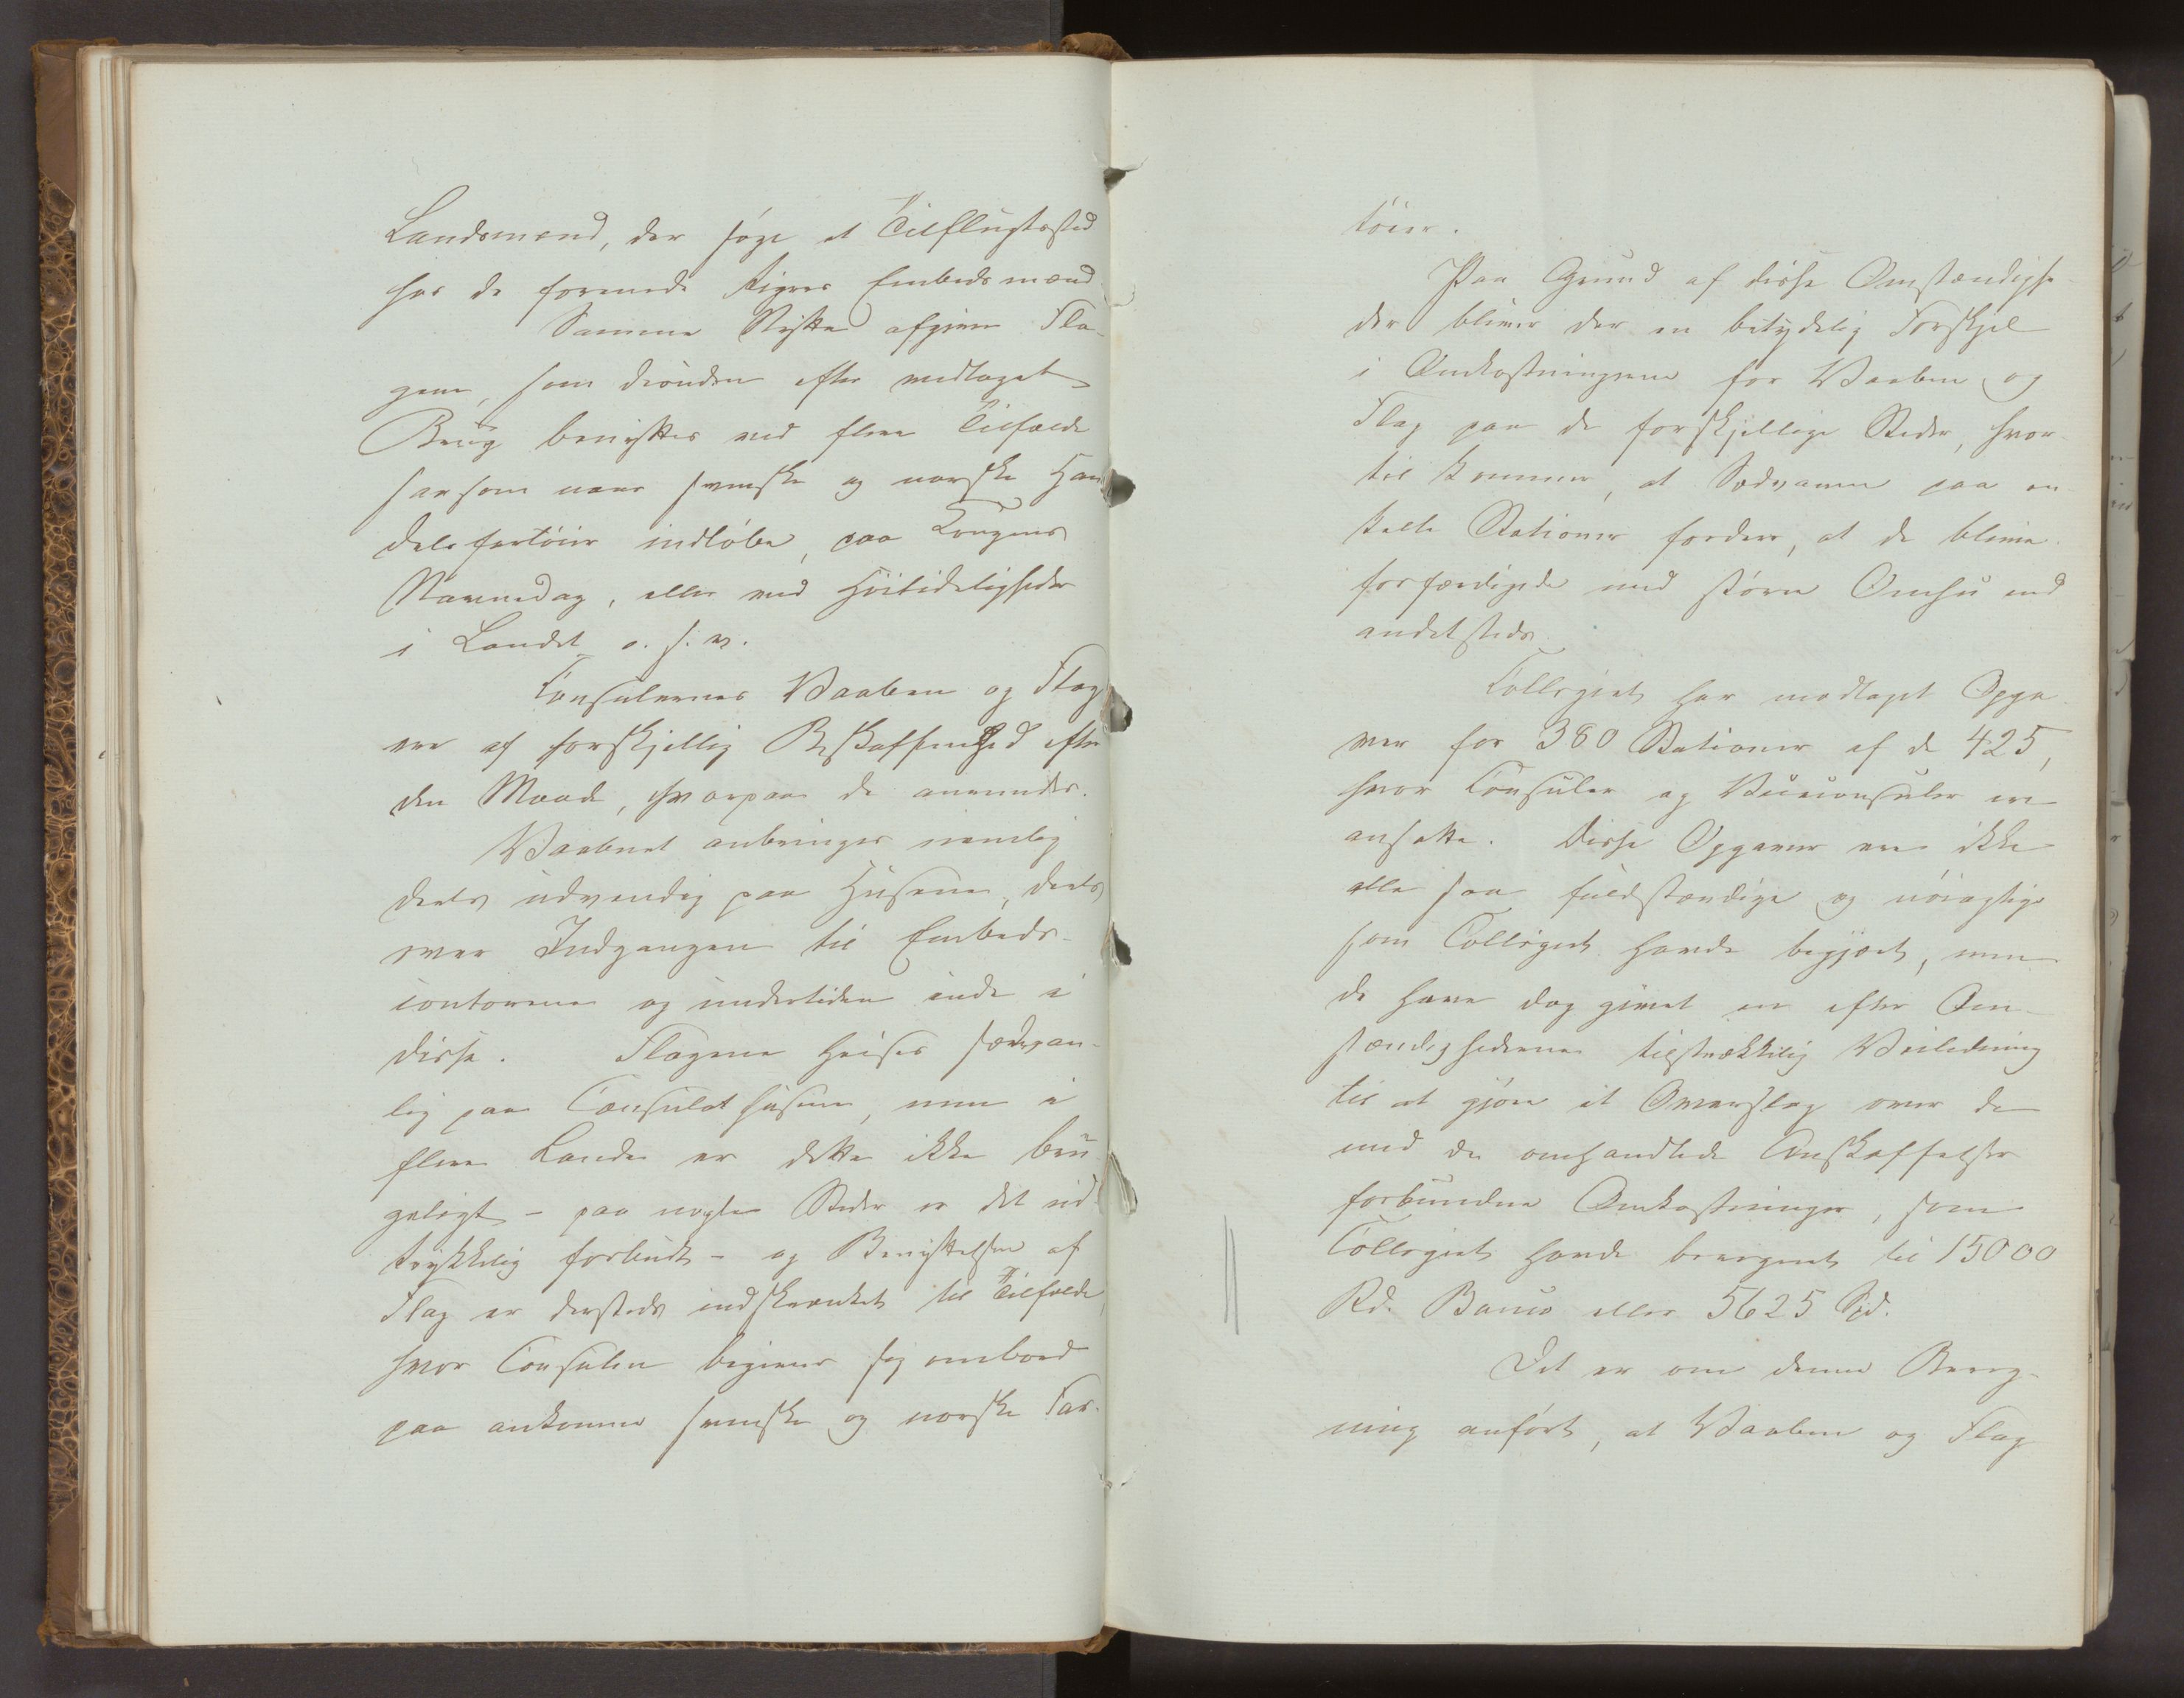 Landsmænd, der søge et Tilflugtssted
hos de forenede Rigers Embedsmænd
Samme Nytte afgiver Fla-
gene, som desuden efter vedtaget
Brug benyttes ved flere Tilfælde
saasom naar svenske og norske Han
delsfartöier indløbe, paa Kongens
Navnedag, eller ved Höitideligheder
i Landet o. s. v.
Consulernes Vaaben og Flag
ere af forskjellig Beskaffenhed efter
den Maade, hvorpaa de anvendes.
Vaabnet anbringes nemlig
deels udvendig paa Husene, deels
over Indgangen til Embeds-
contorerne og undertiden inde i
disse. Flagene heises sædvan-
lig paa Consulathusene, men i
flere Lande er dette ikke bru-
geligt – paa nogle Steder er det ud
trykkelig forbudt – og Benyttelsen af
Flag er dersteds indskrænket til Tilfælde,
hvor Consulen begiver sig ombord
paa ankomne svenske og norske Far-
töier.
Paa Grund af disse Omstændighe
der bliver der en betydelig Forskjel
i Omkostningerne for Vaaben og
Flag paa de forskjellige Steder, hvor-
til kommer, at Sædvanen paa en-
kelte Stationer fordrer, at de blive
forfærdigede med større Omhu end
andetsteds.
Collegiet har modtaget Opga
ver for 380 Stationer af de 425,
hvor Consuler og Viceconsuler ere
ansatte. Disse Opgaver ere ikke
alle saa fuldstændige og nöiagtige
som Collegiet havde begjært, men
de have dog givet en efter Om-
stændighederne tilstrækkelig Veiledning
til at gjöre et Overslag over de
med de omhandlede Anskaffelser
forbundne Omkostninger, som
Collegiet havde beregnet til 15000
Rd. Banco eller 5625 Spd.
Det er om denne Bereg-
ning anført, at Vaaben og Flag